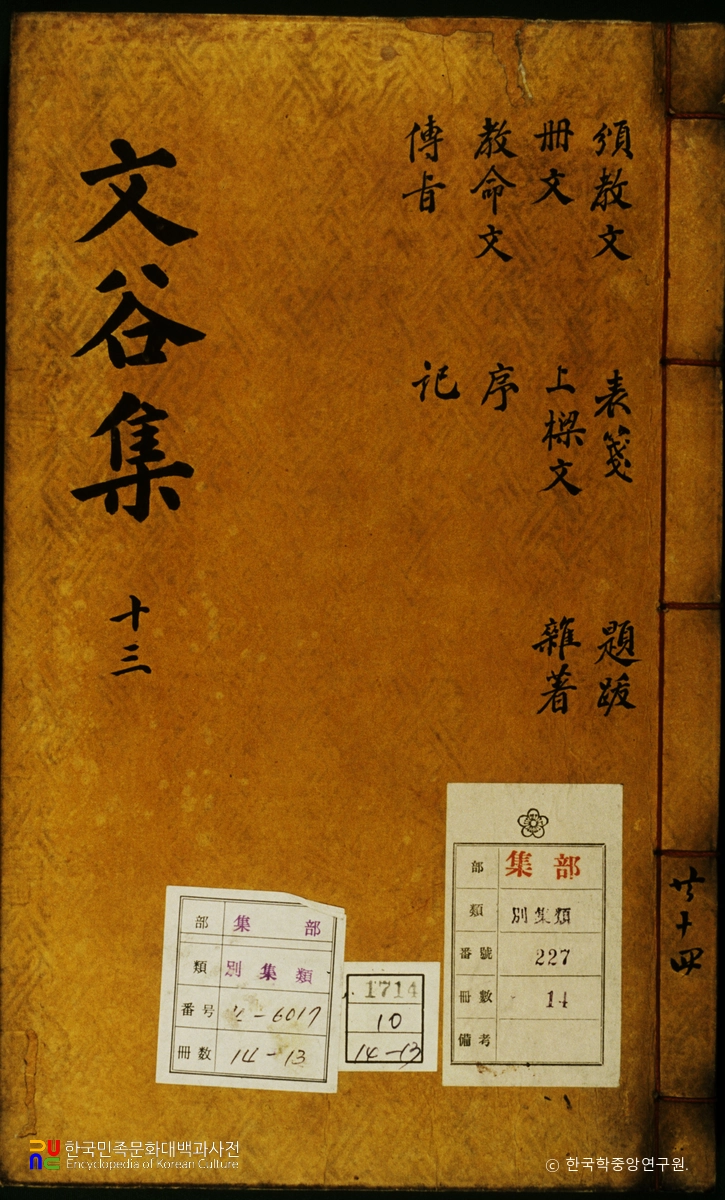 文谷集 十三
頒教文 表箋 題跋
冊文 上樑文 雜著
教命文 序
傳旨 記
共十四
部 集部
類 別集類
番號 227
冊數 14
備考
部 集部
類 別集類
番号 4-6017
冊数 14-13
1714
10
14-13
한국민족문화대백과사전
Encyclopedia of Korean Culture
ⓒ 한국학중앙연구원.